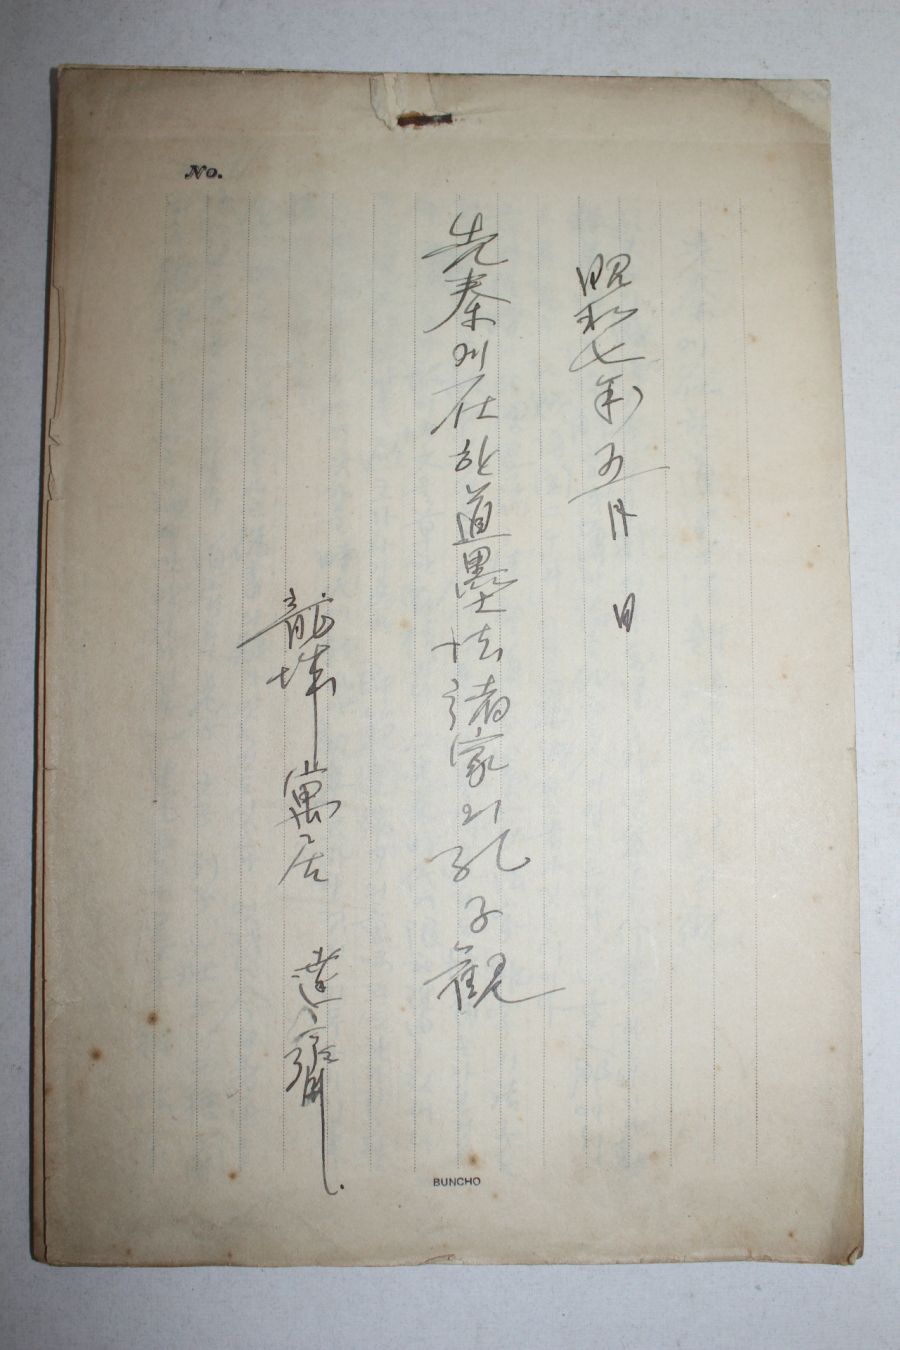 No.
昭和七年五月 日
先秦에在한道墨法諸家의孔子觀
龍 寓居 達齋
BUNCHO